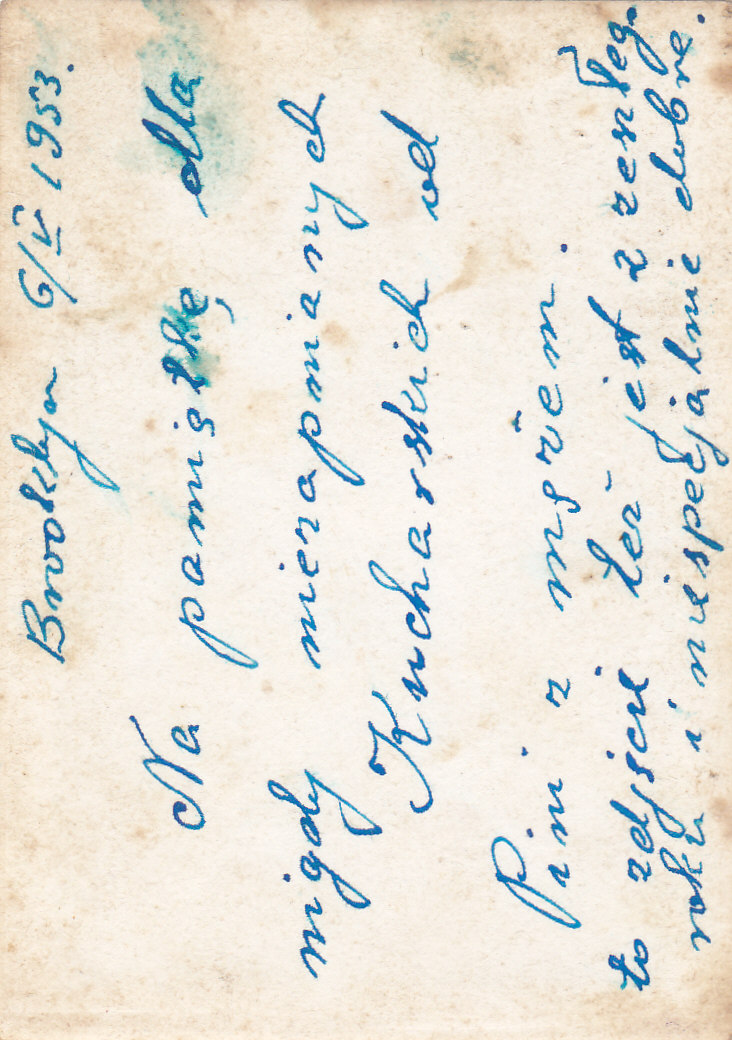 Brooklyn 6/V 1953.
Na pamiątkę dla
nigdy niezapmianych
Kucharskich od
Pini z mężem.
to zdjęcie też jest z zeszłeg.
roku i niespecjalnie dobre.